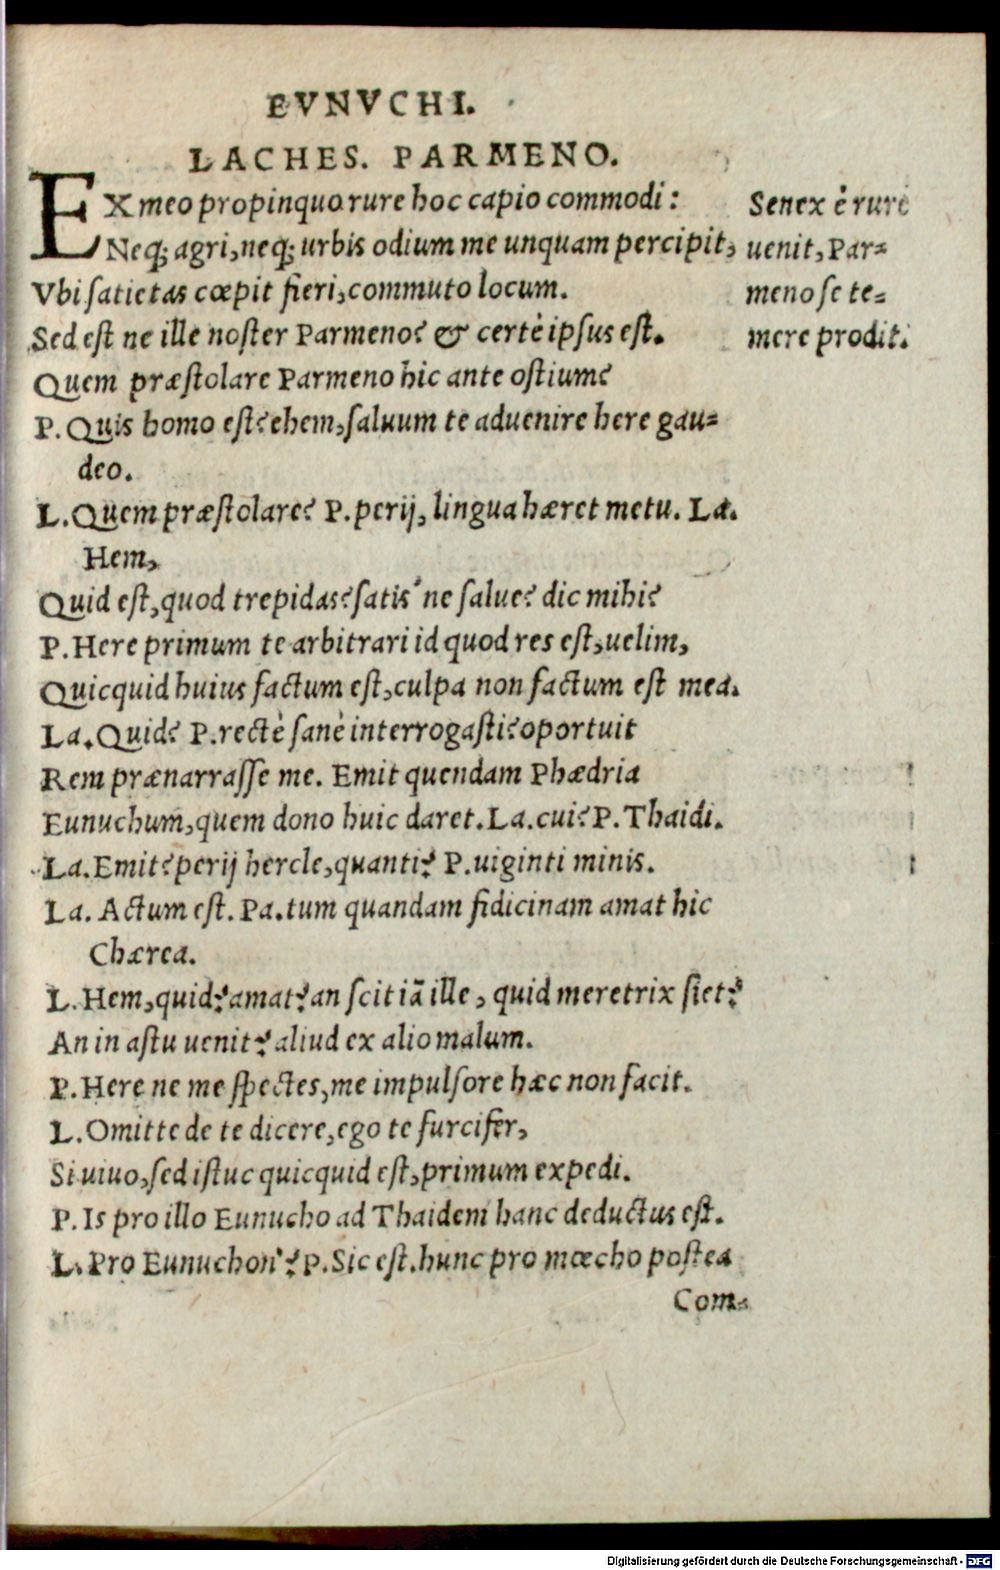 EVNVCHI.
LACHES. PARMENO.
EX meo propinquo rure hoc capio commodi:
Neq; agri, neq; urbis odium me unquam percipit,
Vbi satietas cœpit fieri, commuto locum.
Sed est ne ille noster Parmeno? & certè ipsus est.
Quem præstolare Parmeno hic ante ostium?
P. Quis homo est? ehem, saluum te aduenire here gau-
deo.
L. Quem præstolare? P. perij, lingua hæret metu. La.
Hem,
Quid est, quod trepidas? satis'ne salue? dic mihi?
P. Here primum te arbitrari id quod res est, uelim,
Quicquid huius factum est, culpa non factum est mea.
La. Quid? P. rectè sanè interrogasti? oportuit
Rem prænarrasse me. Emit quendam Phædria
Eunuchum, quem dono huic daret. La. cui? P. Thaidi.
La. Emit? perij hercle, quanti? P. uiginti minis.
La. Actum est. Pa. tum quandam fidicinam amat hic
Chærea.
L. Hem, quid? amat? an scit iã ille, quid meretrix siet?
An in astu uenit? aliud ex alio malum.
P. Here ne me spectes, me impulsore hæc non facit.
L. Omitte de te dicere, ego te furcifer,
Si uiuo, sed istuc quicquid est, primum expedi.
P. Is pro illo Eunucho ad Thaidem hanc deductus est.
L. Pro Eunuchon'? P. Sic est. hunc pro mœcho postea
Com-
Senex è rure
uenit, Par-
meno se te-
mere prodit.
Digitalisierung gefördert durch die Deutsche Forschungsgemeinschaft - DFG